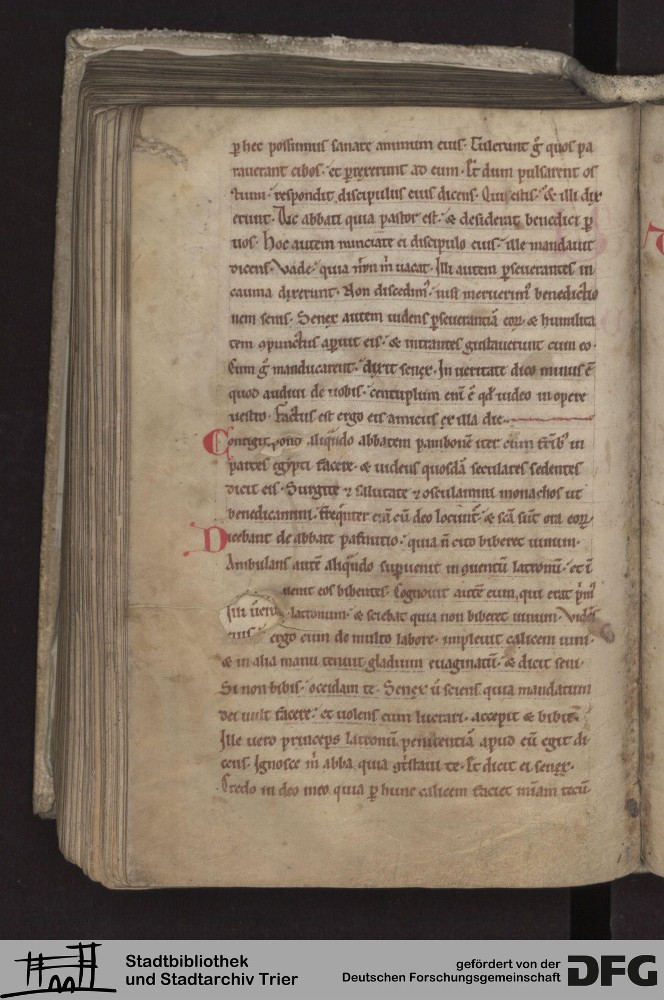 p hec possumus sanare animum eius. Tulerunt g̃ quos pa
rauerant cibos. et prexerunt ad eum. Et dum pulsarent os
tium. respondit discipulus eius dicens. Qui estis. & illi dix
erunt. Dic abbati quia pastor est. & desiderat benedici p
uos. Hoc autem nunciante ei discipulo eius. ille mandauit
dicens. Vade. quia uacat. Illi autem pseuerantes in
cauma dixerunt. Non discedim᷒. nisi meruerim᷒ benedictio
nem senis. Senex autem uidens pseuerantiā eoꝝ. & humilita
tem apuit eis. & intrantes gustauerunt cum eo.
Cum g̃ manducarent. dixit senex. In ueritate dico minus ē
quod audiui de uobis. centuplum eni ē qd uideo in opere
uestro. Factus est ergo eis amicus ex illa die.
Contigit aliqndo abbatem pambonē iter cum frib᷒ in
partes egypti facere. & uidens quosdā seculares sedentes
dicit eis. Surgite ⁊ salutate ⁊ osculamini monachos ut
benedicamini. frequnter eni cū deo locunt̃. & scā sūt ora eoꝝ.
Dicebant de abbate pafnutio. quia ñ cito biberet uinum.
Ambulans autē aliqndo supuenit in quentū latronū. et ī
uenit eos bibentes. Cognouit autē eum, qui erat pm᷒
latronum. & sciebat quia non biberet uinum. Vidēs
ergo eum de multo labore. impleuit calicem uini.
& in alia manu tenuit gladium euaginatū. & dicit seni.
Si non bibis. occidam te. Senex ũ sciens quia mandatum
dei uult facere. et uolens eum lucrari. accepit & bibit.
Ille uero princeps latronū penitentiā apud eū egit di
cens. Ignosce m abba quia te. Et dicit ei senex.
Credo in deo meo quia p hunc calicem faciet mīam tecū
Stadtbibliothek
und Stadtarchiv Trier
gefördert von der
Deutschen Forschungsgemeinschaft
DFG